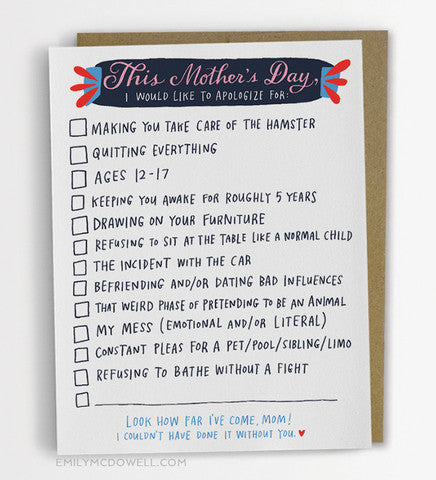 This Mother's Day,
I WOULD LIKE TO APOLOGIZE FOR:
MAKING YOU TAKE CARE OF THE HAMSTER
QUITTING EVERYTHING
AGES 12-17
KEEPING YOU AWAKE FOR ROUGHLY 5 YEARS
DRAWING ON YOUR FURNITURE
REFUSING TO SIT AT THE TABLE LIKE A NORMAL CHILD
THE INCIDENT WITH THE CAR
BEFRIENDING AND/OR DATING BAD INFLUENCES
THAT WEIRD PHASE OF PRETENDING TO BE AN ANIMAL
MY MESS (EMOTIONAL AND/OR LITERAL)
CONSTANT PLEAS FOR A PET/POOL/SIBLING/LIMO
REFUSING TO BATHE WITHOUT A FIGHT
LOOK HOW FAR I'VE COME, MOM!
I COULDN'T HAVE DONE IT WITHOUT YOU. ♥
EMILYMCDOWELL.COM